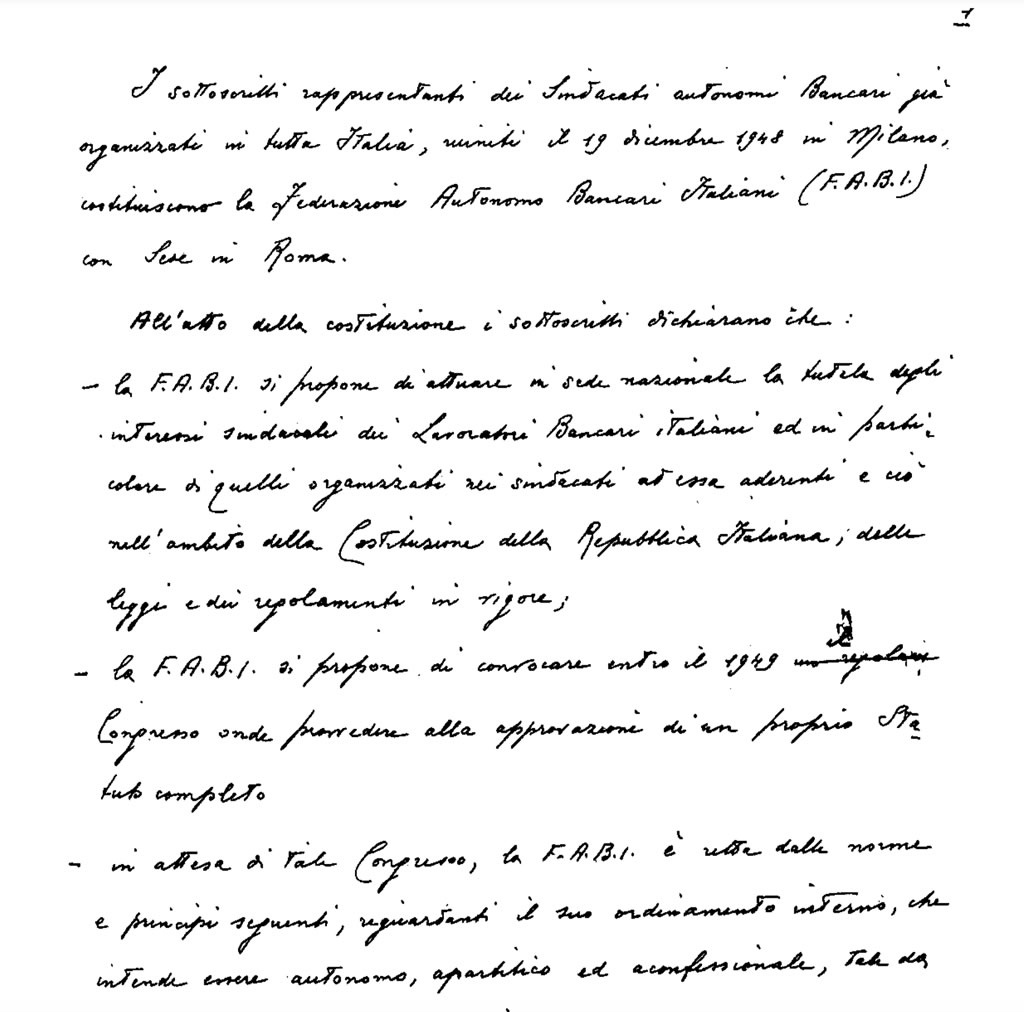 1
I sottoscritti rappresentanti dei Sindacati autonomi Bancari già
organizzati in tutta Italia, riuniti il 19 dicembre 1948 in Milano,
costituiscono la Federazione Autonomo Bancari Italiani (F.A.B.I.)
con Sede in Roma.
All'atto della costituzione i sottoscritti dichiarano che:
- la F.A.B.I. si propone di attuare in sede nazionale la tutela degli
interessi sindacali dei Lavoratori Bancari italiani ed in parti-
colare di quelli organizzati nei sindacati ad essa aderenti e ciò
nell'ambito della Costituzione della Repubblica Italiana, delle
leggi e dei regolamenti in vigore;
- la F.A.B.I. si propone di convocare entro il 1949 il
Congresso onde provvedere alla approvazione di un proprio Sta-
tuto completo
- in attesa di tale Congresso, la F.A.B.I. è retta dalle norme
e principi seguenti, riguardanti il suo ordinamento interno, che
intende essere autonomo, apartitico ed aconfessionale, tale da